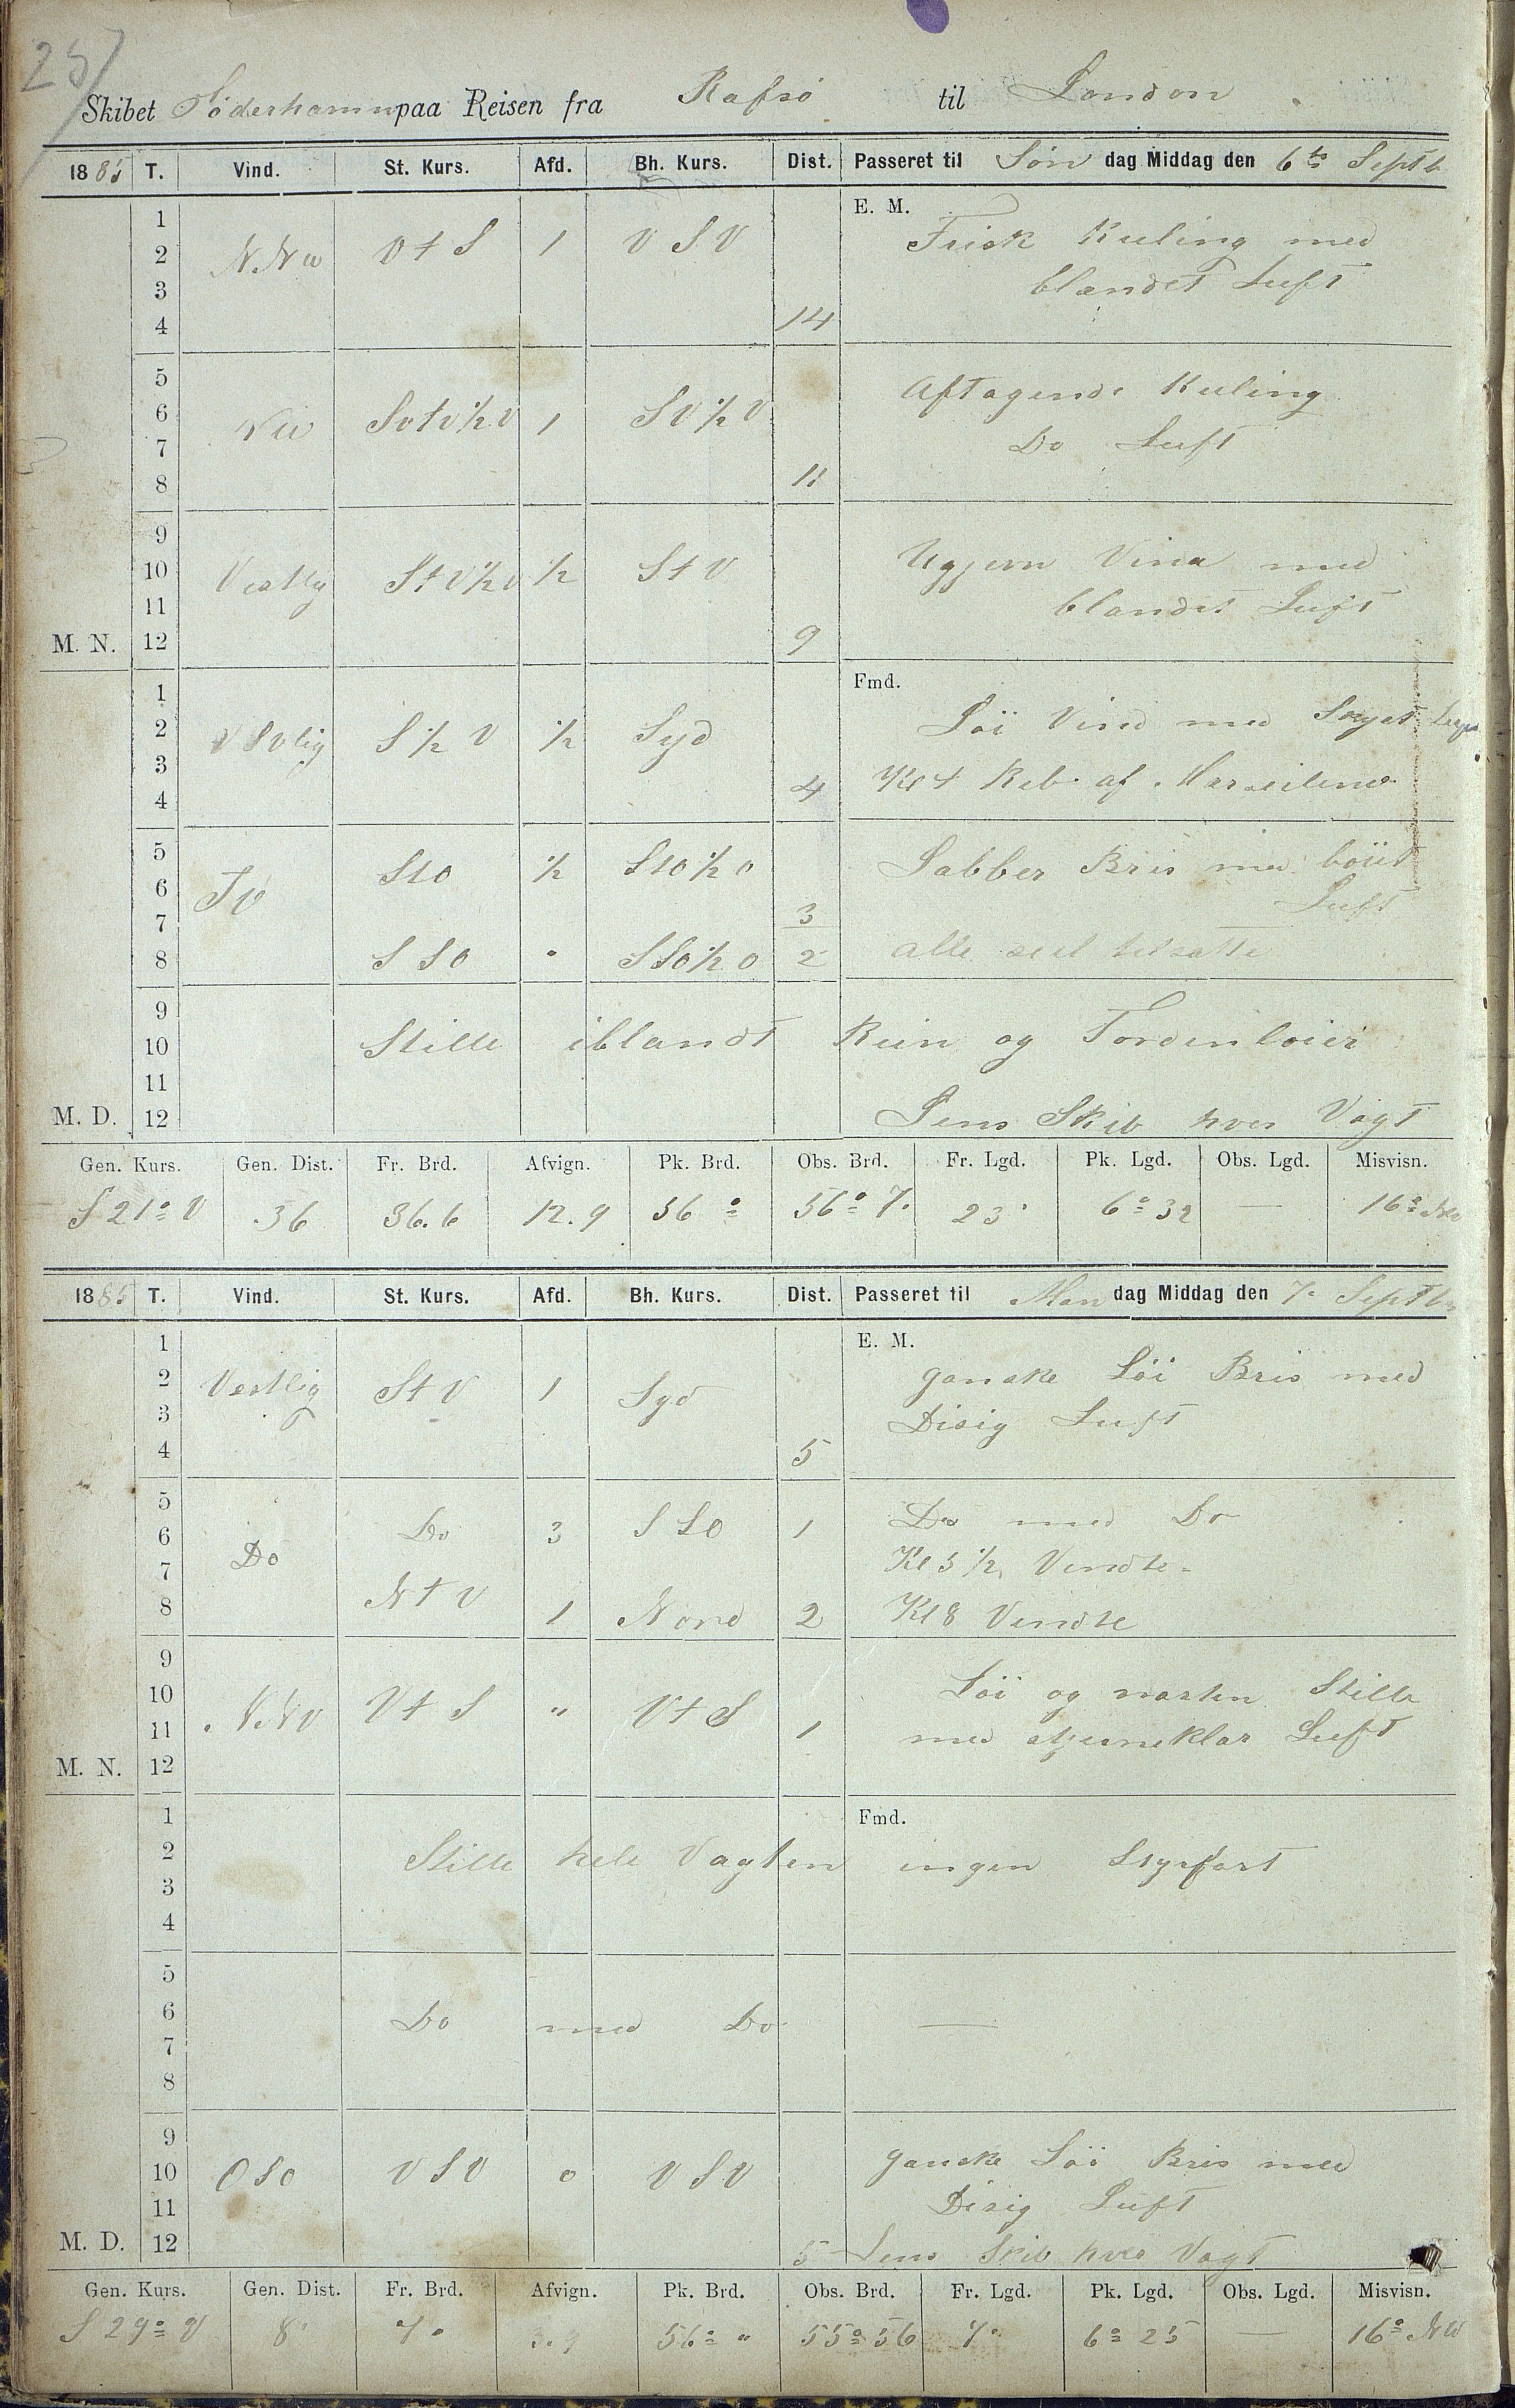 257
Skibet Söderhamn paa Reisen fra Rafsö til London.
1885 T. Vind. St. Kurs. Afd. Bh. Kurs. Dist. Passeret til Søn dag Middag den 6te Septb
E. M.
1
2 N.Nw VtS 1 VSV Frisk Kuling med
3 blandet Luft
4 14
5
6 Nw SvtV½V 1 SV½V Aftagende Kuling
7 Do Luft
8 11
9
10 Vestlig StV½V ½ StV Ugjevn Vind med
11 blandet Luft
M. N. 12 9
Fmd.
1
2 VSVlig S½V ½ Syd Löi Vind med
3
4 4 Kl 4 Reb. af Merseilene
5
6 StO ½ StO½O Labber Bris med böiet
7 3 Luft
8 SSO " SSO½O 2 alle seil tilsatte
9
10 Stille iblandt Rein og Tordenböier
11
M. D. 12 Lens Skib hver Vagt
Gen. Kurs. Gen. Dist. Fr. Brd. Afvign. Pk. Brd. Obs. Brd. Fr. Lgd. Pk. Lgd. Obs. Lgd. Misvisn.
S 21° V 36 36.6 12.9 56° 56° 7' 23' 6° 32 — 16° Nw
1885 T. Vind. St. Kurs. Afd. Bh. Kurs. Dist. Passeret til Man dag Middag den 7de Septbr
E. M.
1
2 Vestlig StV 1 Syd ganske Löi Bris med
3 Disig Luft
4 5
5
6 Do Do 3 SSO 1 Do med Do
7 Kl 5½ Vendte
8 NtV 1 Nord 2 Kl 8 Vendte
9
10 N.NV VtS " VtS Löi og næsten Stille
11 1 med stjerneklar Luft
M. N. 12
Fmd.
1
2 Stille hele Vagten ingen Styrfart
3
4
5
6 Do med Do —
7
8
9
10 OSO VSV 0 VSV ganske Löi Bris med
11 Disig Luft
M. D. 12 5 Lens Skib hver Vagt
Gen. Kurs. Gen. Dist. Fr. Brd. Afvign. Pk. Brd. Obs. Brd. Fr. Lgd. Pk. Lgd. Obs. Lgd. Misvisn.
S 29° V 8' 7' 3.9 56° " 55° 56 7' 6° 25 — 16° NW